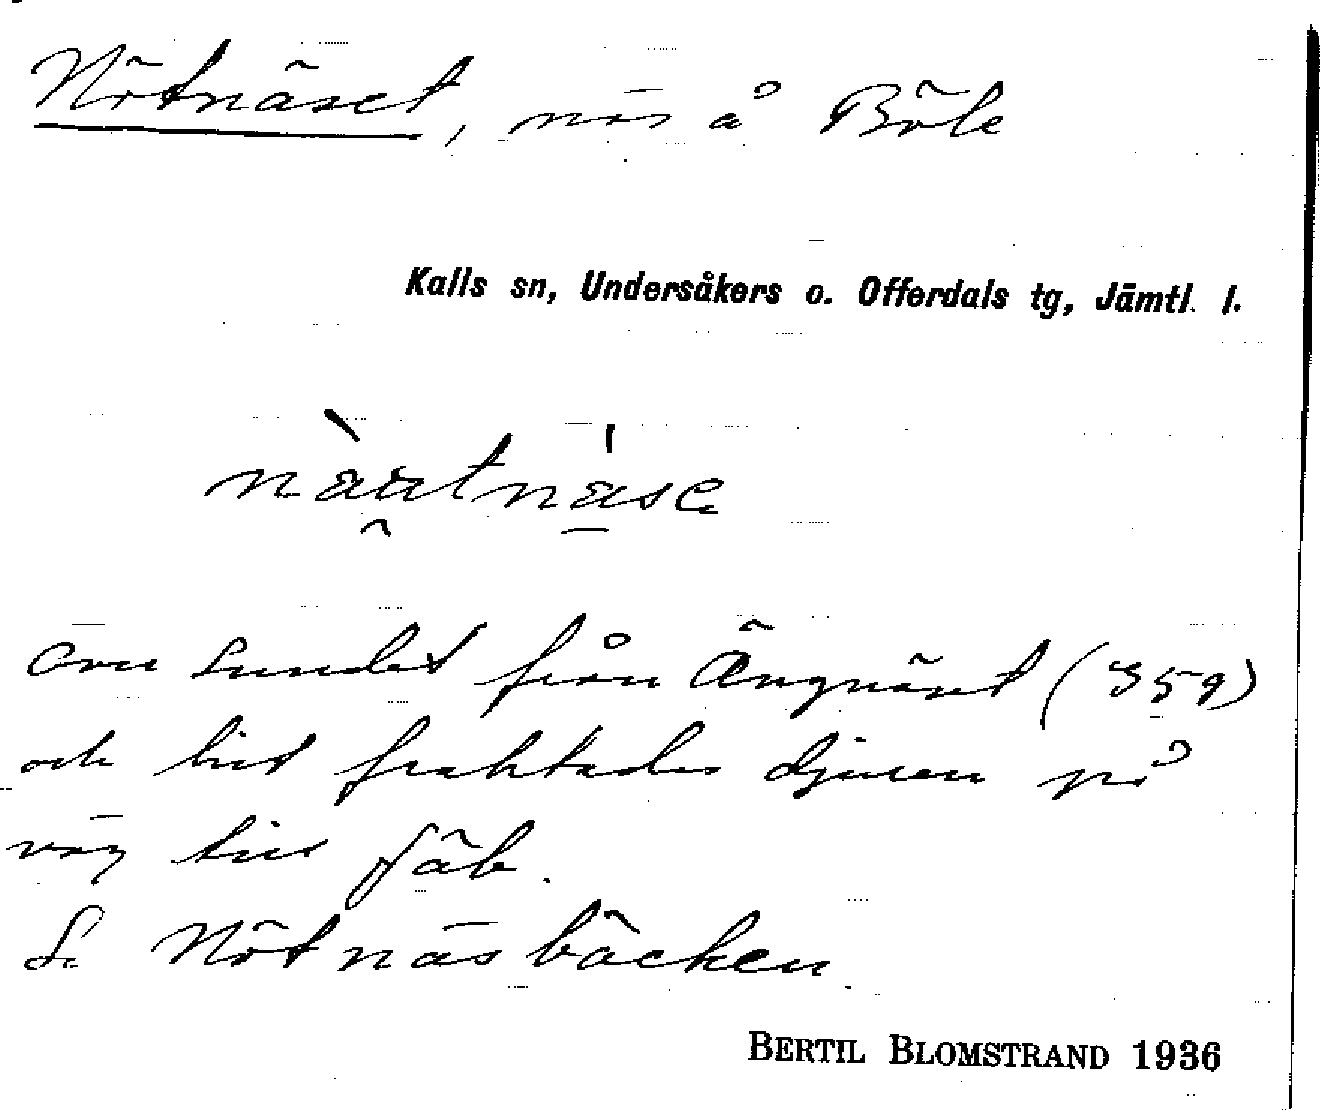 Nötnäset, näs å Böle
Kalls sn, Undersåkers o. Offerdals tg, Jämtl. l.
nàu̯tnä̱se
Över sundet från Ängnäset (359)
och hit fraktades djuren på
väg till fäb.
S. Nötnäsbäcken
BERTIL BLOMSTRAND 1936